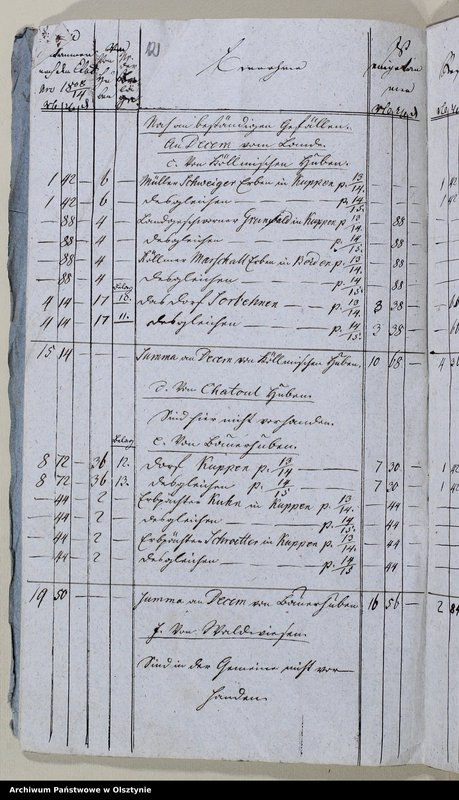 Einnahme
Noch an beständigen Gefällen.
An Decem vom Lande.
c. Von Köllmischen Huben.
1 42 — 6 — Müller Schweiger Erben in Kuppen p. 13/14.
1 42 — 6 — desgleichen — p. 14/15.
— 88 — 4 — Landgeschworner Grunwald in Kuppen p. 13/14. — 88 —
— 88 — 4 — desgleichen — p. 14/15. — 88 —
— 88 — 4 — Köllmer Marschall Erben in p. 13/14. — 88 —
— 88 — 4 — desgleichen — p. 14/15. — 88 —
Belag
4 14 — 17 10. das Dorf Sorbehnen — p. 13/14. 3 38 —
4 14 — 17 11. desgleichen — p. 14/15. 3 38 —
15 14 — Summa an Decem von Köllmischen Huben. 10 68 —
d. Von Chatoul Huben.
Sind hier nicht vorhanden.
e. Von Bäuerhuben.
Belag
8 72 — 36 12. Dorf Kuppen p. 13/14 — 7 30 —
8 72 — 36 13. desgleichen p. 14/15 — 7 30 —
— 44 — 2 — Erbpächter Kuhn in Kuppen p. 13/14. — 44 —
— 44 — 2 — desgleichen — p. 14/15. — 44 —
— 44 — 2 — Erbpächter Schroetter in Kuppen p. 13/14. — 44 —
— 44 — 2 — desgleichen — p. 14/15 — 44 —
19 50 — Summa an Decem von Bäuerhuben 16 56 —
f. Von Waldwiesen.
Sind in der Gemeine nicht vor-
handen.
Archiwum Państwowe w Olsztynie